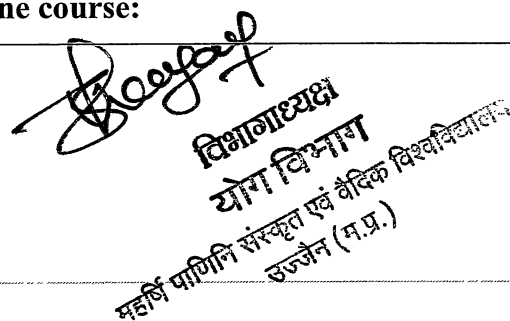 ne course:
विभागाध्यक्ष
योग विभाग
महर्षि पाणिनि संस्कृत एवं वैदिक विश्वविद्यालय
उज्जैन (म.प्र.)